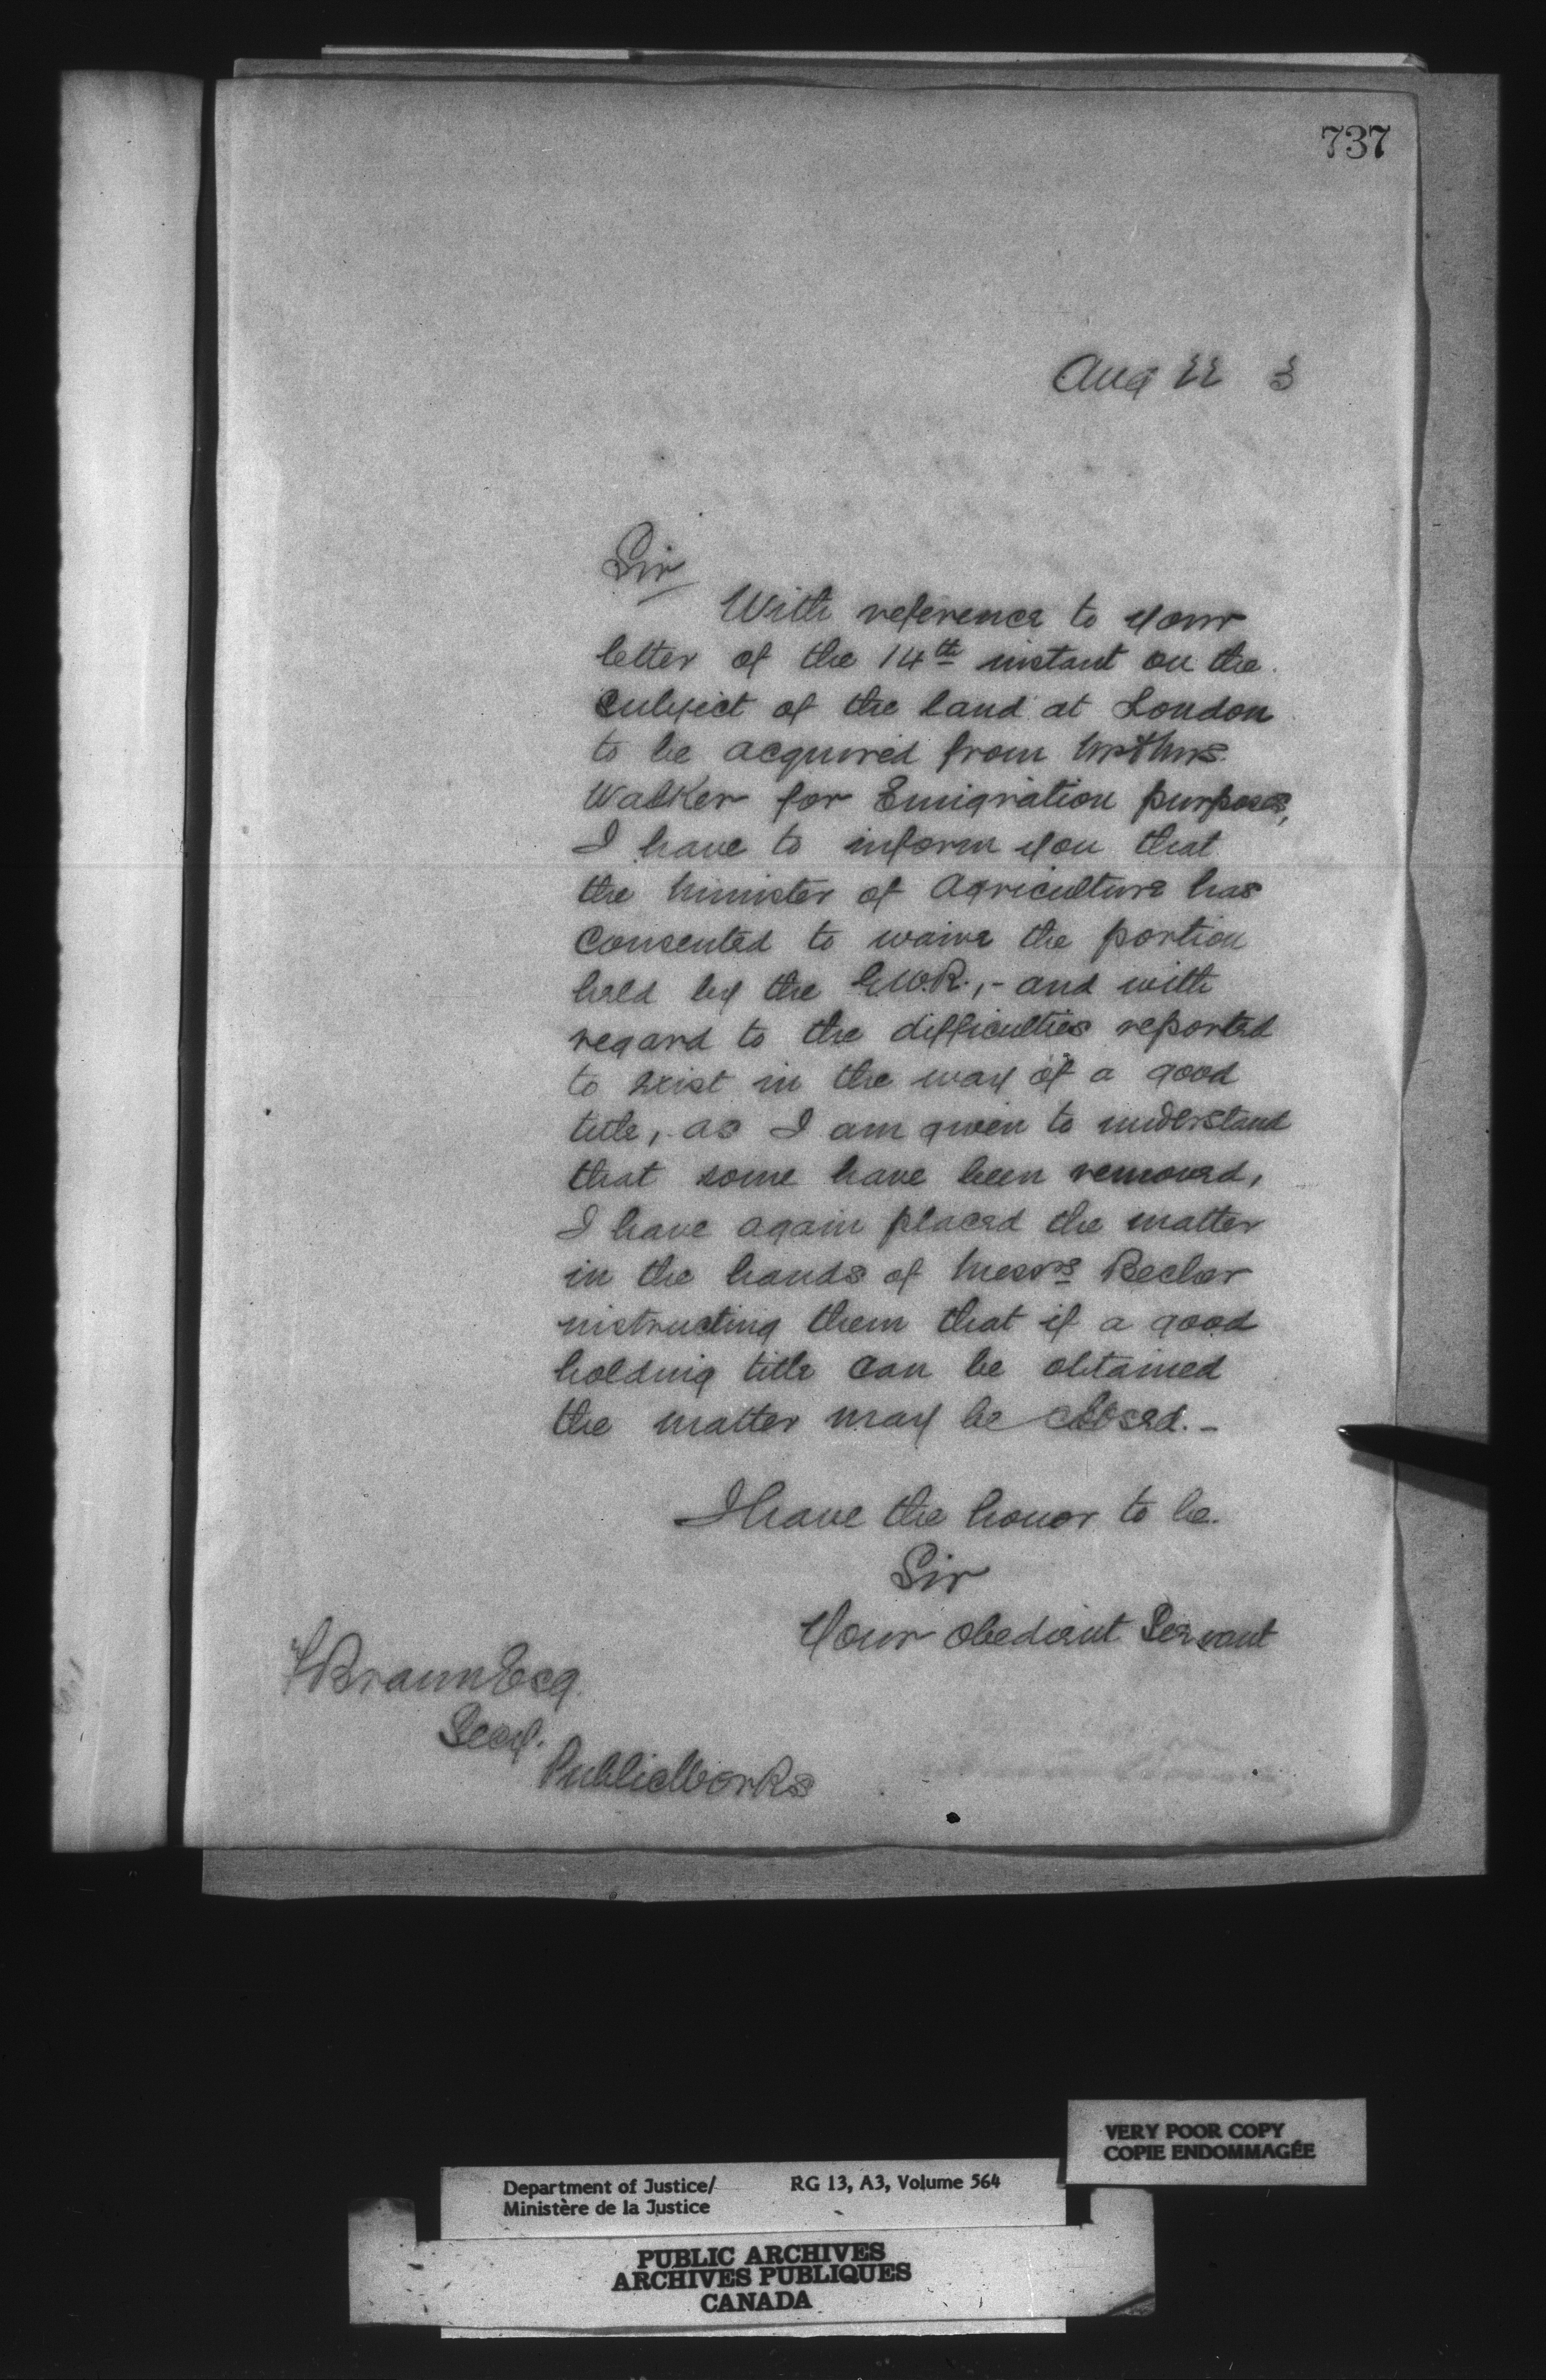 737
Aug 22 3
Sir
With reference to your
letter of the 14th instant on the
subject of the land at London
to be acquired from Mr & Mrs.
Walker for Emigration purposes,
I have to inform you that
the Minister of Agriculture has
consented to waive the portion
held by the G.W.R., - and with
regard to the difficulties reported
to exist in the way of a good
title, - as I am given to understand
that some have been removed,
I have again placed the matter
in the hands of Messrs Becher
instructing them that if a good
holding title can be obtained
the matter may be closed. -
I have the honor to be.
Sir
Your obedient Servant
F Braun Esq.
Secy.
Public Works
VERY POOR COPY
COPIE ENDOMMAGÉE
Department of Justice/ RG 13, A3, Volume 564
Ministère de la Justice
PUBLIC ARCHIVES
ARCHIVES PUBLIQUES
CANADA